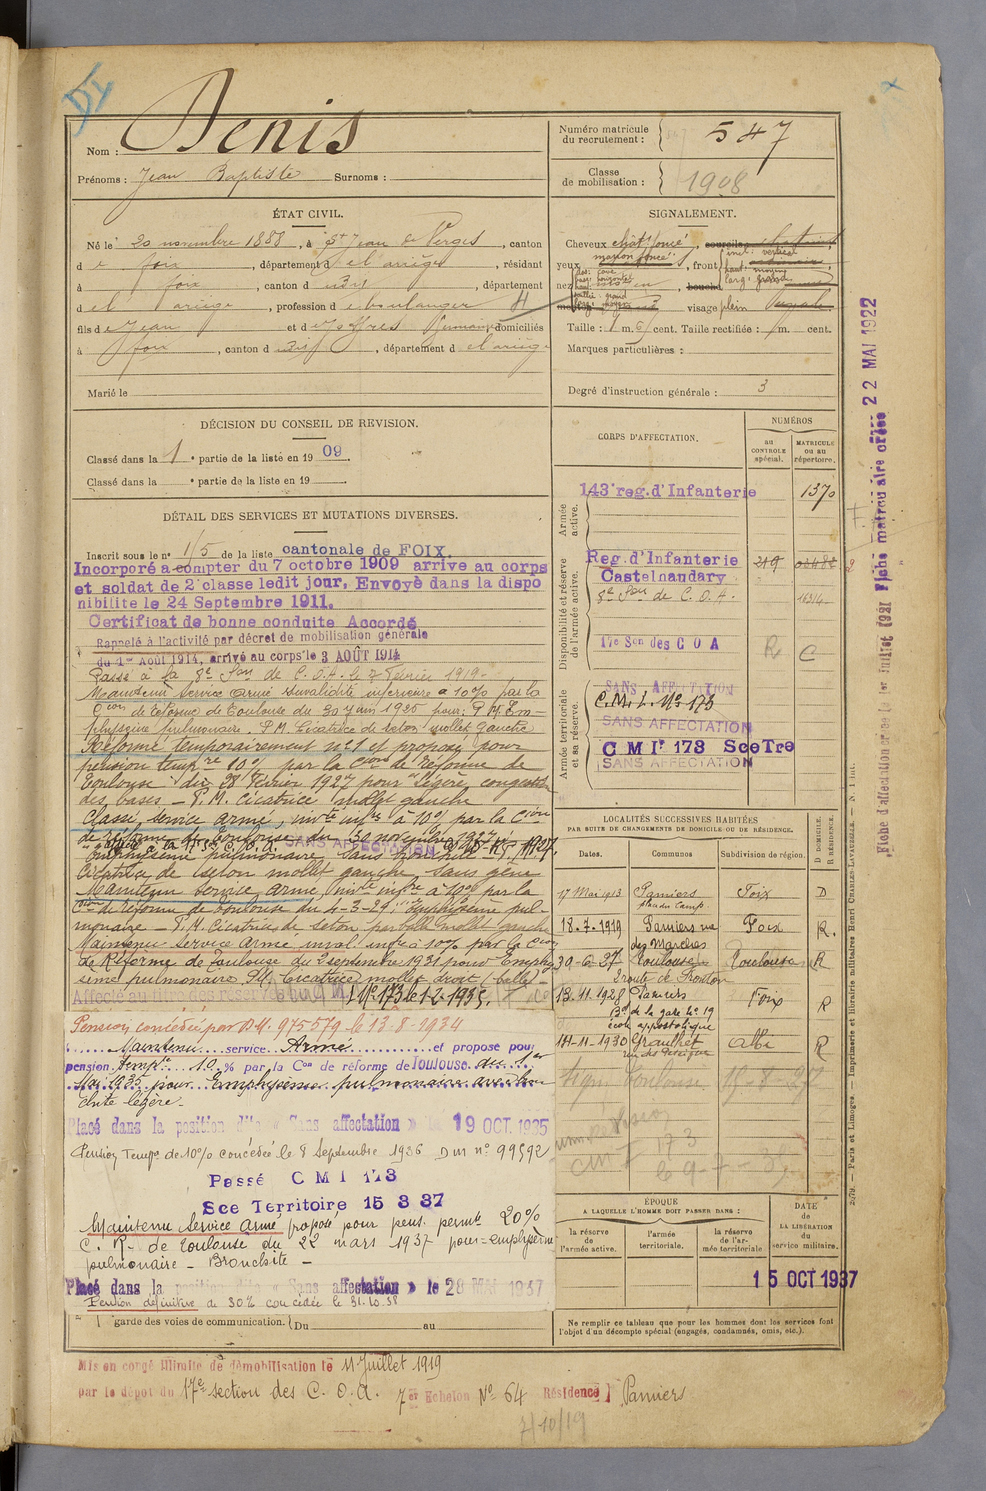 DI
Nom : Denis
Prénoms : Jean Baptiste Surnoms :
Numéro matricule du recrutement : 547
Classe de mobilisation : 1908
ÉTAT CIVIL.
Né le 20 novembre 1888, à St Jean de Verges, canton
de foix, département de l'ariège, résidant
à foix, canton d udit, département
de l'ariège, profession de boulanger
fils de Jean et de Joffres domiciliés
à foix, canton d udit, département de l'ariège
Marié le
SIGNALEMENT.
Cheveux chât foncé, sourcils
yeux marron foncé, front
nez
visage plein
Taille : 1 m. cent. Taille rectifiée : m. cent.
Marques particulières :
Degré d'instruction générale : 3
DÉCISION DU CONSEIL DE REVISION.
Classé dans la 1 e partie de la liste en 1909.
Classé dans la e partie de la liste en 19
DÉTAIL DES SERVICES ET MUTATIONS DIVERSES.
Inscrit sous le n° 15 de la liste cantonale de FOIX.
Incorporé a compter du 7 octobre 1909 arrive au corps
et soldat de 2e classe ledit jour. Envoyé dans la dispo
nibilite le 24 Septembre 1911.
Certificat de bonne conduite Accordé
Rappelé à l'activité par décret de mobilisation générale
du 1er Août 1914, arrivé au corps le 3 AOÛT 1914
Passé à la 8e Son de C.O.A. le 7 Février 1919.
Maintenu Service Armé Invalidité inférieure à 10% par la
Cion de réforme de Toulouse du 30 juin 1925 pour: P.M. Em-
physème pulmonaire. P.M. Cicatrice de séton mollet gauche
Réformé temporairement n°1 et proposé pour
pension tempre 10% par la Cion de réforme de
Toulouse du 28 Février 1927 pour légère congestion
des bases - P.M. Cicatrice mollet gauche
Classé service armé, invté infre à 10% par la Cion
de réforme de Toulouse du 30 novembre 1927
SANS AFFECTATION
emphysème pulmonaire sans
cicatrice de séton mollet gauche sans gêne
Maintenu service armé, invté infre à 10% par la
Cion de réforme de Toulouse du 4-3-29: Emphysème pul-
monaire - P.M. Cicatrice de séton par balle mollet gauche
Maintenu Service Armé inval. infre à 10% par la Cion
de Réforme de Toulouse du 2 septembre 1931 pour Emphy
sème pulmonaire P.M. Cicatrice mollet droit (balle)
Affecté au titre des réserves au C.M.I. N° 173 le 1-2-1935.
Pension concédée par D.M. 975579 le 13-8-1934
Maintenu service Armé et propose pour
pension tempre 10 % par la Con de réforme de Toulouse du 1er
Mai 1935 pour Emphysème pulmonaire avec bron
chite légère.
Placé dans la position dite « Sans affectation » le 19 OCT. 1935
Pension Tempe de 10% concédée le 8 Septembre 1936 DM n° 99592
Passé C M I 173
Sce Territoire 15 3 37
Maintenu Service armé proposé pour pens. permte 20%
C. R. de Toulouse du 22 mars 1937 pour = emphysème
pulmonaire - Bronchite -
Placé dans la position dite « Sans affectation » le 28 MAI 1937
Pension définitive de 30% concédée le 31.10.38
garde des voies de communication. (Du au
CORPS D'AFFECTATION.
NUMÉROS
au CONTROLE spécial.
MATRICULE OU AU répertoire.
Armée active.
143e reg. d'Infanterie 1370
Disponibilité et réserve de l'armée active.
Reg. d'Infanterie 219
Castelnaudary
8e Son de C.O.A.
17e Son des C O A R C
Armée territoriale et sa réserve.
SANS AFFECTATION
C.M.I. N° 173
SANS AFFECTATION
C M Ir 173 Sce Tre
SANS AFFECTATION
LOCALITÉS SUCCESSIVES HABITÉES
PAR SUITE DE CHANGEMENTS DE DOMICILE OU DE RÉSIDENCE.
Dates. Communes Subdivision de région. D DOMICILE. R RÉSIDENCE.
17 Mai 1913 Pamiers Foix D
18-7-1919 Pamiers rue des Marchés Foix R.
30-6-27 Toulouse Toulouse R
2 route de Fronton
13-11-1928 Pamiers Foix R
Bd de la gare N° 19
école apostolique
14-11-1930 Graulhet Albi R
ÉPOQUE
A LAQUELLE L'HOMME DOIT PASSER DANS :
la réserve de l'armée active.
l'armée territoriale.
la réserve de l'armée territoriale
DATE de LA LIBÉRATION du service militaire.
15 OCT 1937
Ne remplir ce tableau que pour les hommes dont les services font
l'objet d'un décompte spécial (engagés, condamnés, omis, etc.).
Mis en congé illimité de démobilisation le 11 Juillet 1919
par le dépôt du 17e section des C.O.A. 7er Echelon N° 64 Résidence Pamiers
7/10/19
Fiche matricu aire créée 22 MAI 1922
2/79. — Paris et Limoges. — Imprimerie et librairie militaires Henri CHARLES-LAVAUZELLE.